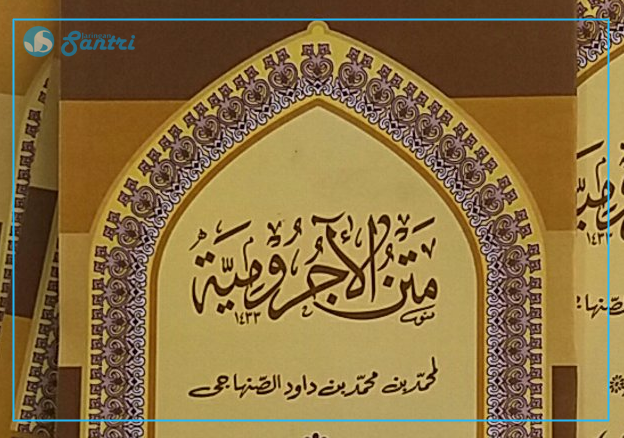 Jaringan
Santri
متن الآجرومية
١٤٣٣
لمحمد بن محمد بن داود الصنهاجي